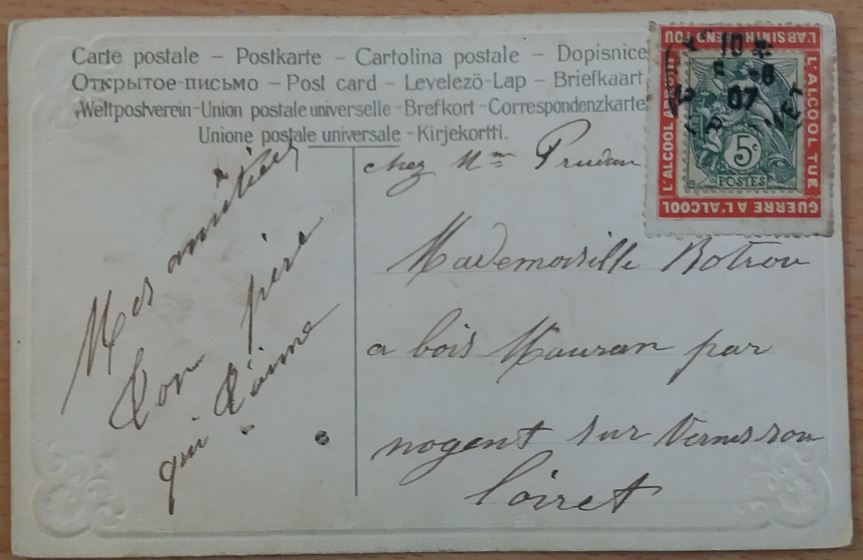 Carte postale – Postkarte – Cartolina postale – Dopisnice
Открытое-письмо – Post card – Levelező-Lap – Briefkaart
Weltpostverein-Union postale universelle-Brefkort-Correspondenzkarte
Unione postale universale -Kirjekortti.
L'ABSINTHE REND FOU
L'ALCOOL TUE
GUERRE A L'ALCOOL
L'ALCOOL ABRUTIT
10
07
5c
POSTES
Mes amitiés
Ton père
qui t'aime
chez Mme Prudan
Mademoiselle Rotrou
a bois Mauran par
nogent sur Vernisson
Loiret